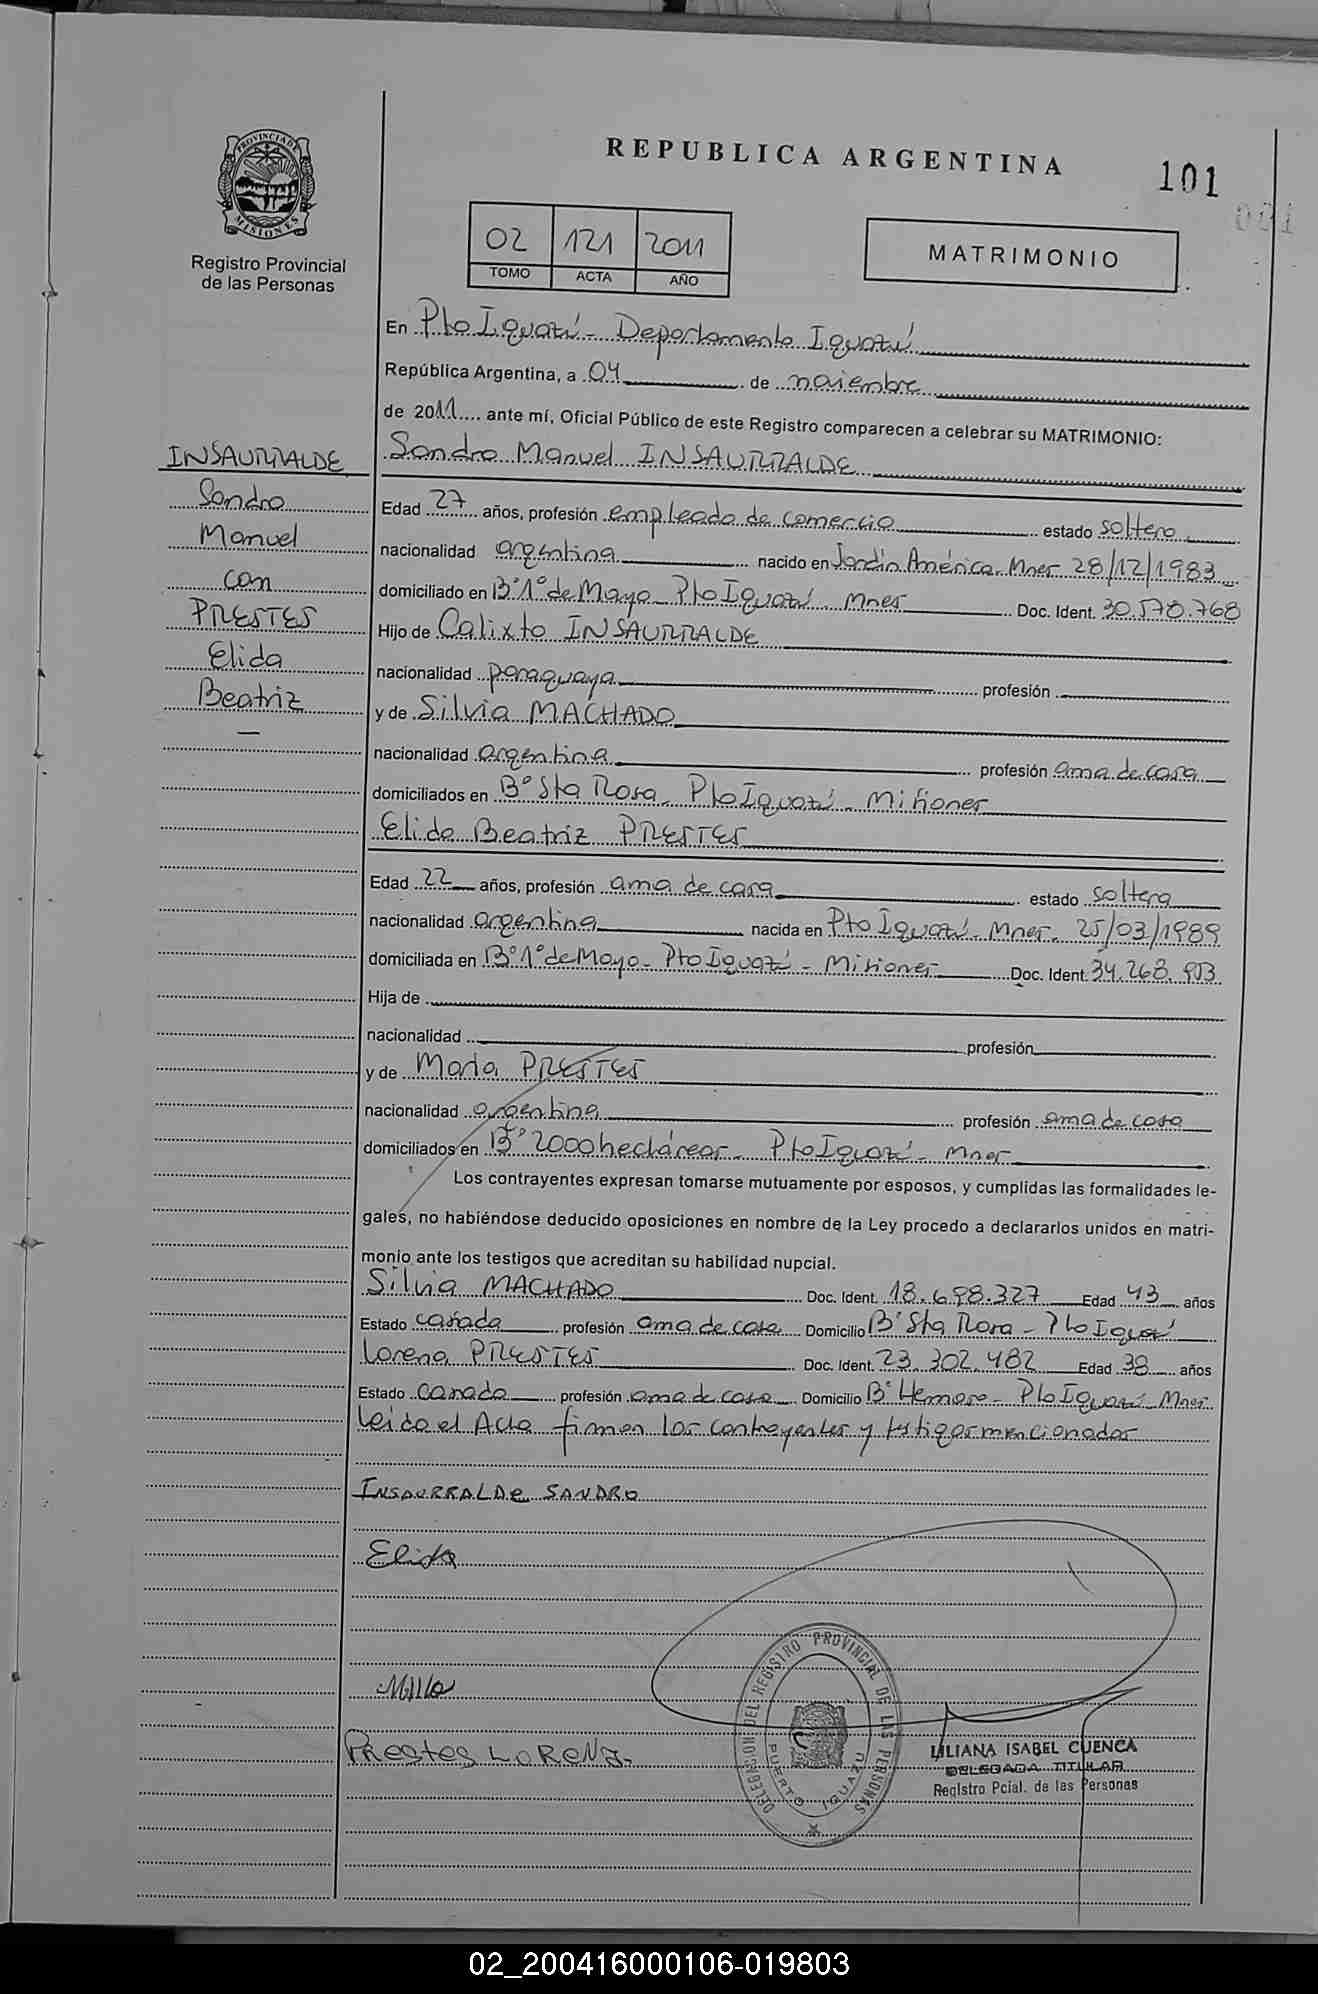 REPUBLICA ARGENTINA
101
PROVINCIA DE MISIONES
Registro Provincial
de las Personas
02 121 2011
TOMO ACTA AÑO
MATRIMONIO
En Pto Iguazú - Departamento Iguazú
República Argentina, a 04 de noviembre
de 2011 ante mí, Oficial Público de este Registro comparecen a celebrar su MATRIMONIO:
INSAURRALDE
Sandro
Manuel
con
PRESTES
Elida
Beatriz
Sandro Manuel INSAURRALDE
Edad 27 años, profesión empleado de comercio estado soltero
nacionalidad argentina nacido en Jardín América - Mnes 28/12/1983
domiciliado en B° 1° de Mayo - Pto Iguazú - Mnes Doc. Ident. 30.578.768
Hijo de Calixto INSAURRALDE
nacionalidad paraguaya profesión
y de Silvia MACHADO
nacionalidad argentina profesión ama de casa
domiciliados en B° Sta Rosa - Pto Iguazú - Misiones
Elida Beatriz PRESTES
Edad 22 años, profesión ama de casa estado soltera
nacionalidad argentina nacida en Pto Iguazú - Mnes - 25/03/1989
domiciliada en B° 1° de Mayo - Pto Iguazú - Misiones Doc. Ident. 34.268.
Hija de
nacionalidad profesión
y de PRESTES
nacionalidad argentina profesión ama de casa
domiciliados en B° 2000 hectáreas - Pto Iguazú - Mnes
Los contrayentes expresan tomarse mutuamente por esposos, y cumplidas las formalidades le-
gales, no habiéndose deducido oposiciones en nombre de la Ley procedo a declararlos unidos en matri-
monio ante los testigos que acreditan su habilidad nupcial.
Silvia MACHADO Doc. Ident. 18.698.327 Edad 43 años
Estado casada profesión ama de casa Domicilio B° Sta Rosa - Pto Iguazú
Lorena PRESTES Doc. Ident. 23.302.482 Edad 38 años
Estado casada profesión ama de casa Domicilio B° Hermoso - Pto Iguazú - Mnes
Leída el Acta firman los contrayentes y testigos mencionados
INSAURRALDE SANDRO
Elida
PRESTES LORENA
DELEGACION DEL REGISTRO PROVINCIAL DE LAS PERSONAS
PUERTO IGUAZU
LILIANA ISABEL CUENCA
DELEGADA TITULAR
Registro Pcial. de las Personas
02_200416000106-019803